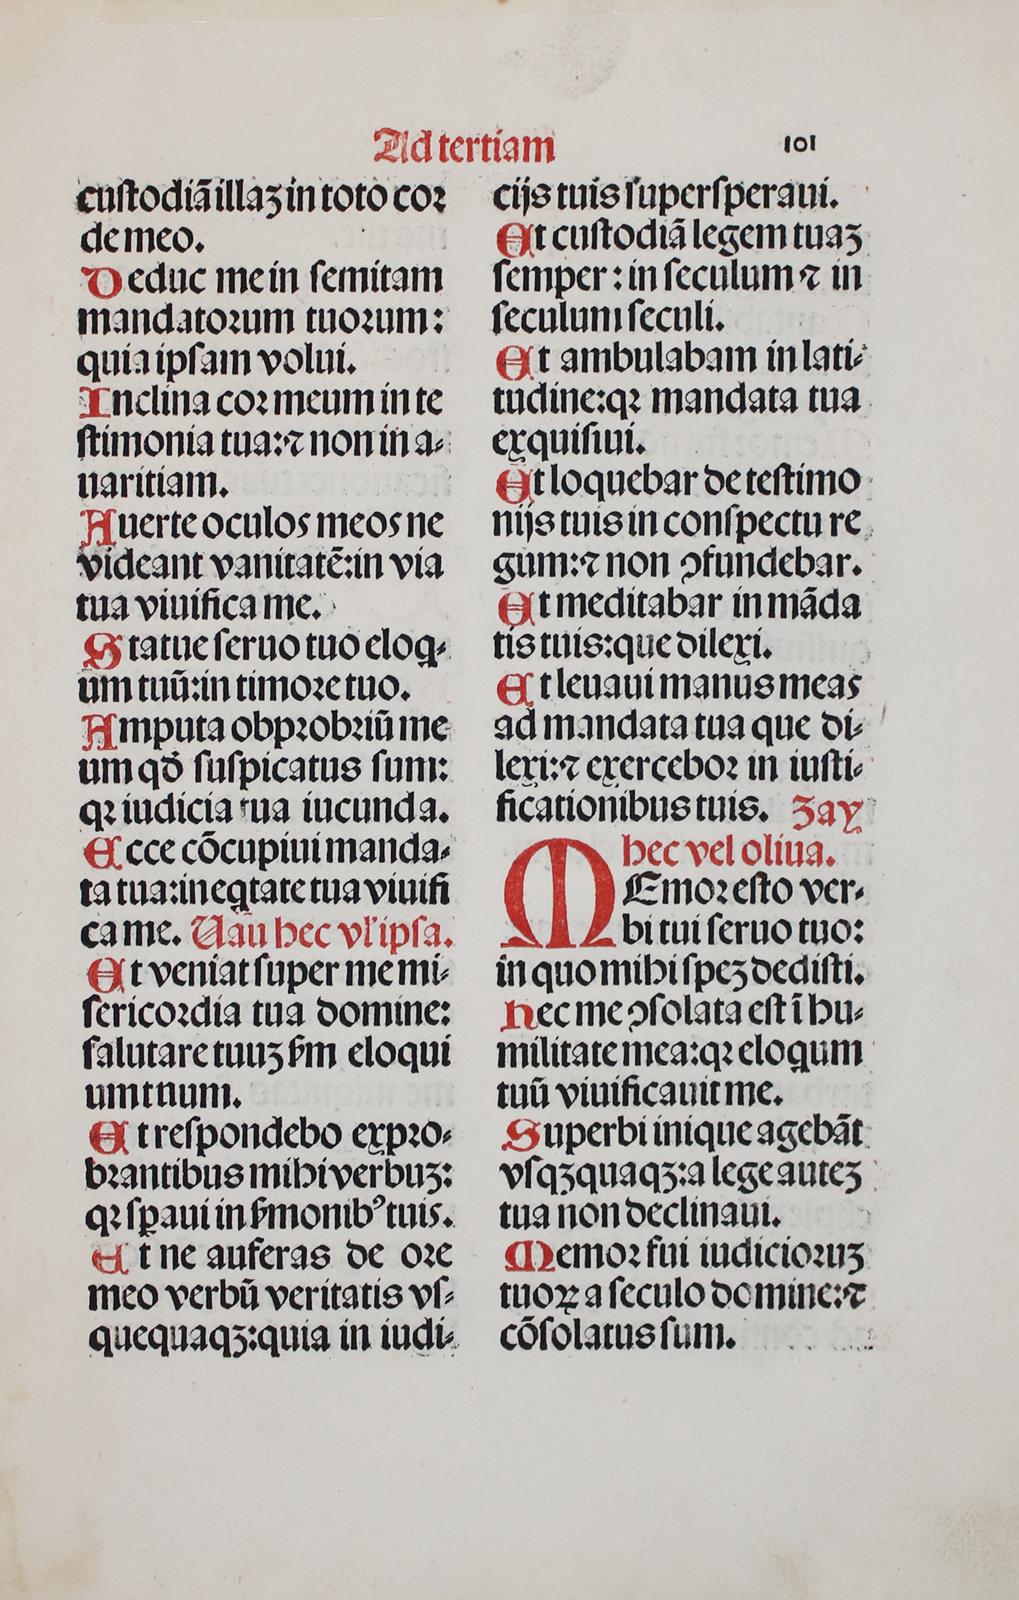 Ad tertiam
101
custodiā illaʒ in toto cor
de meo.
Deduc me in semitam
mandatorum tuorum:
quia ipsam volui.
Inclina cor meum in te
stimonia tua:⁊ non in a-
uaritiam.
Auerte oculos meos ne
videant vanitatē:in via
tua viuifica me.
Statue seruo tuo eloq̄-
um tuū:in timore tuo.
Amputa obprobriū me
um qđ suspicatus sum:
qꝛ iudicia tua iucunda.
Ecce cōcupiui manda-
ta tua:in eq̄tate tua viuifi
ca me. Uau hec vľ ipsa.
Et veniat super me mi-
sericordia tua domine:
salutare tuuʒ ẜm eloqui
um tuum.
Et respondebo expro-
brantibus mihi verbuʒ:
qꝛ sꝑaui in ẜmonibꝰ tuis.
Et ne auferas de ore
meo verbū veritatis vs-
quequaqʒ:quia in iudi-
cijs tuis supersperaui.
Et custodiā legem tuaʒ
semper: in seculum ⁊ in
seculum seculi.
Et ambulabam in lati-
tudine:qꝛ mandata tua
exquisiui.
Et loquebar de testimo
nijs tuis in conspectu re
gum:⁊ non ꝯfundebar.
Et meditabar in māda
tis tuis:que dilexi.
Et leuaui manus meas
ad mandata tua que di-
lexi:⁊ exercebor in iusti-
ficationibus tuis. Zay
hec vel oliua.
MEmor esto ver-
bi tui seruo tuo:
in quo mihi speʒ dedisti.
Hec me ꝯsolata est ī hu-
militate mea:qꝛ eloqum
tuū viuificauit me.
Superbi inique agebāt
vsqʒquaqʒ:a lege auteʒ
tua non declinaui.
Memor fui iudicioruʒ
tuoꝝ a seculo domine:⁊
cōsolatus sum.